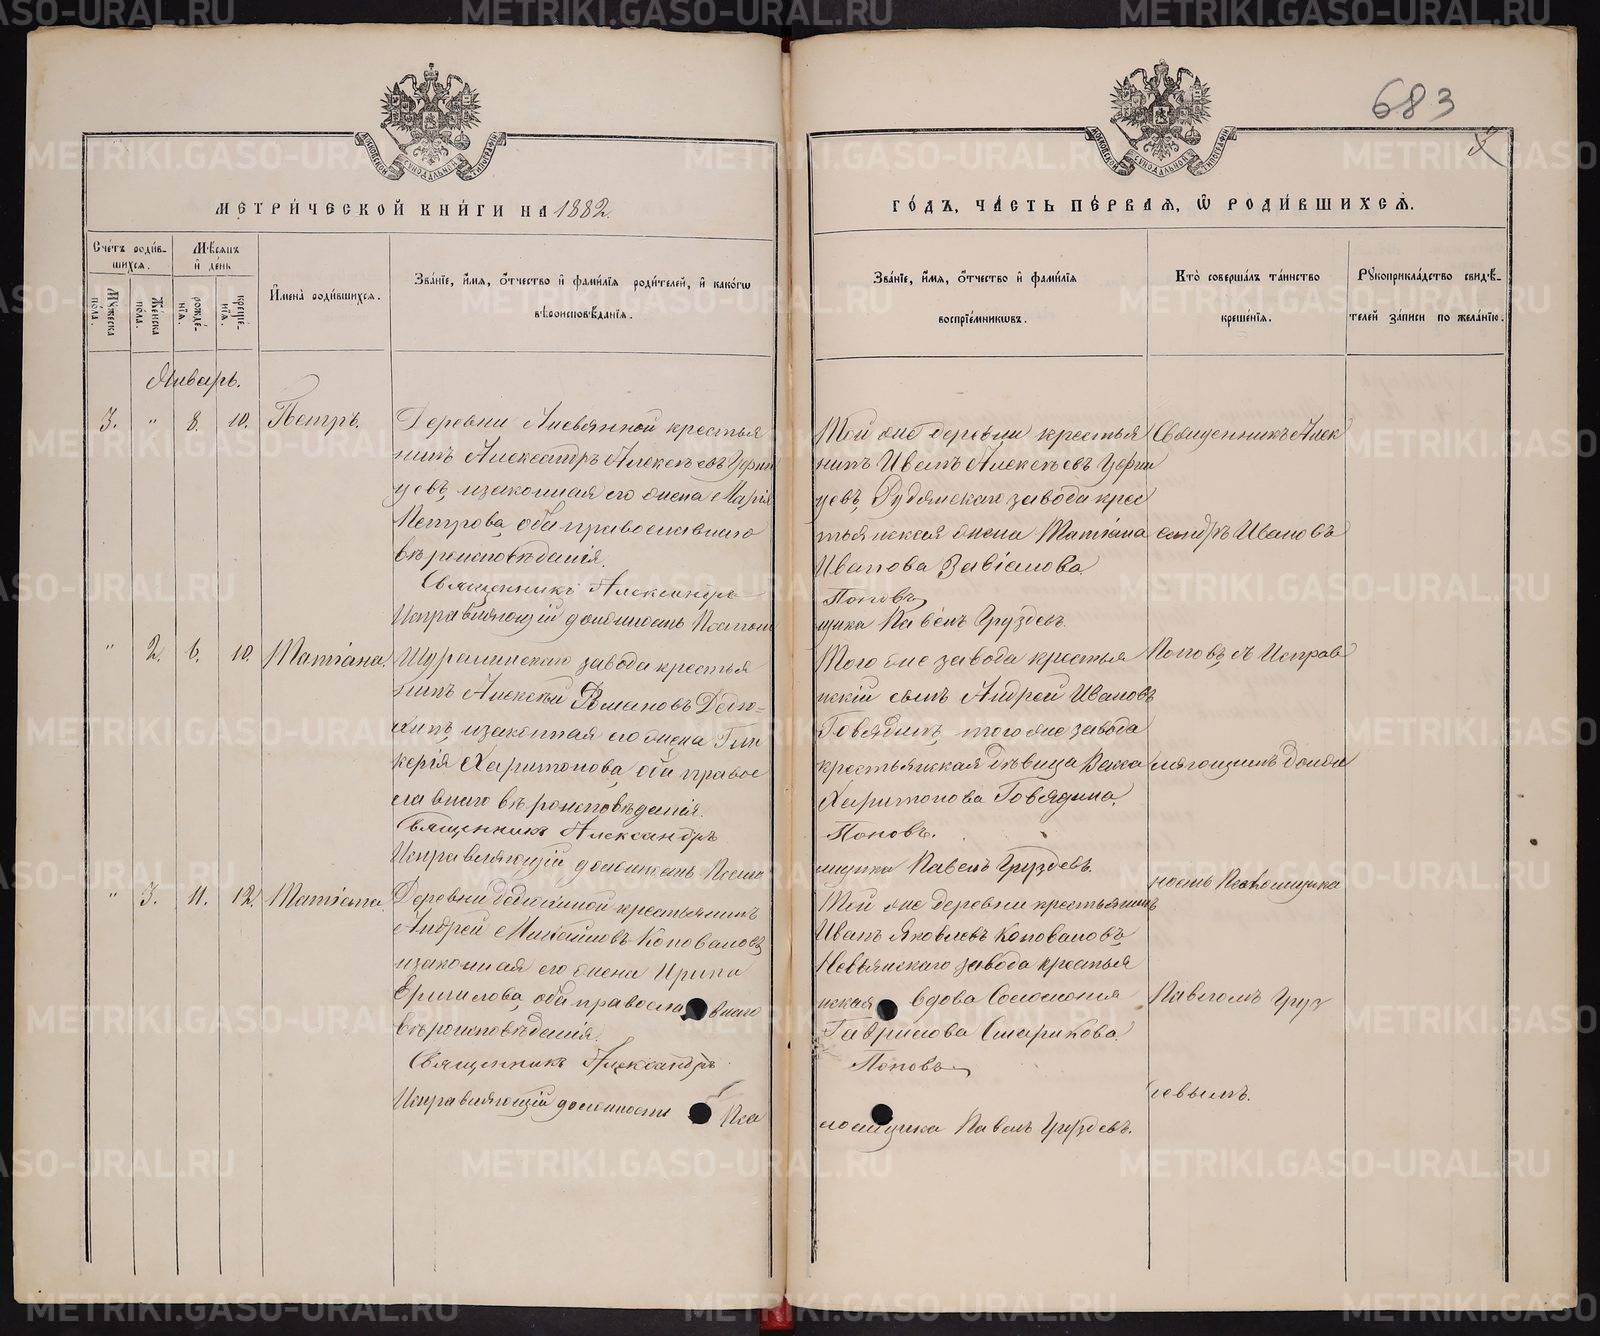 683
МЕТРИ́ЧЕСКОЙ КНИ́ГИ НА 1882.
ГО́ДЪ, ЧА́СТЬ ПЕ́РВАЯ, Ѡ РОДИ́ВШИХСѦ.
Сче́тъ роди́в-
шихсѧ.
Мѣ́сѧцъ
и́ де́нь
Мꙋжеска по́ла.
Же́нска по́ла.
рожде́-
нїѧ.
креще́-
нїѧ.
И́мена̀ роди́вшихсѧ.
Зва́нїе, и́мѧ, ѻ́тчество и́ фами́лїѧ роди́телей, и́ како́гѡ
вѣроисповѣ́данїѧ.
Зва́нїе, и́мѧ, ѻ́тчество и́ фами́лїѧ
воспрїе́мникѡвъ.
Кто̀ соверша́лъ та́инство
креще́нїѧ.
Рꙋкоприкла́дство свидѣ́-
телей за́писи по жела́нїю.
Январь.
3. " 8. 10. Петръ.
Деревни крестья
нинъ Александръ Алексѣевъ
цевъ, и законная его жена Марія
Петрова, оба православнаго
вѣроисповѣданія.
Священникъ Александръ
Исправляющій должность Псалом
Той же деревни крестья
нинъ Иванъ Алексѣевъ
цевъ, Рудянскаго завода крес
тьянская жена Татіана
Иванова Завіалова.
Поповъ
щика Павелъ Груздевъ.
Священникъ Алек
сандръ Ивановъ
" 2. 6. 10. Татіана.
Шуралинскаго завода крестья
нинъ Алексѣй Романовъ Дедю-
хинъ, и законная его жена Гли
керія Харитонова, оба право
славнаго вѣроисповѣданія.
Священникъ Александръ
Исправляющій должность Псало
Того же завода крестья
нскій сынъ Андрей Ивановъ
Говядинъ, того же завода
крестьянская дѣвица Васса
Харитонова Говядина.
Поповъ.
мщика Павелъ Груздевъ.
Поповъ, съ Исправ
ляющимъ долж
ность Псаломщика
" 3. 11. 12. Татіана.
Деревни крестьянинъ
Андрей Михайловъ Коноваловъ
и законная его жена Ирина
Ермилова, оба православнаго
вѣроисповѣданія.
Священникъ Александръ
Исправляющій должность Пса
Той же деревни крестьянинъ
Иванъ Яковлевъ Коноваловъ,
Невьянскаго завода крестья
нская вдова Соломонія
Гаврилова Старикова.
Поповъ
ломщика Павелъ Груздевъ.
Павломъ Груз
девымъ.
METRIKI.GASO-URAL.RU